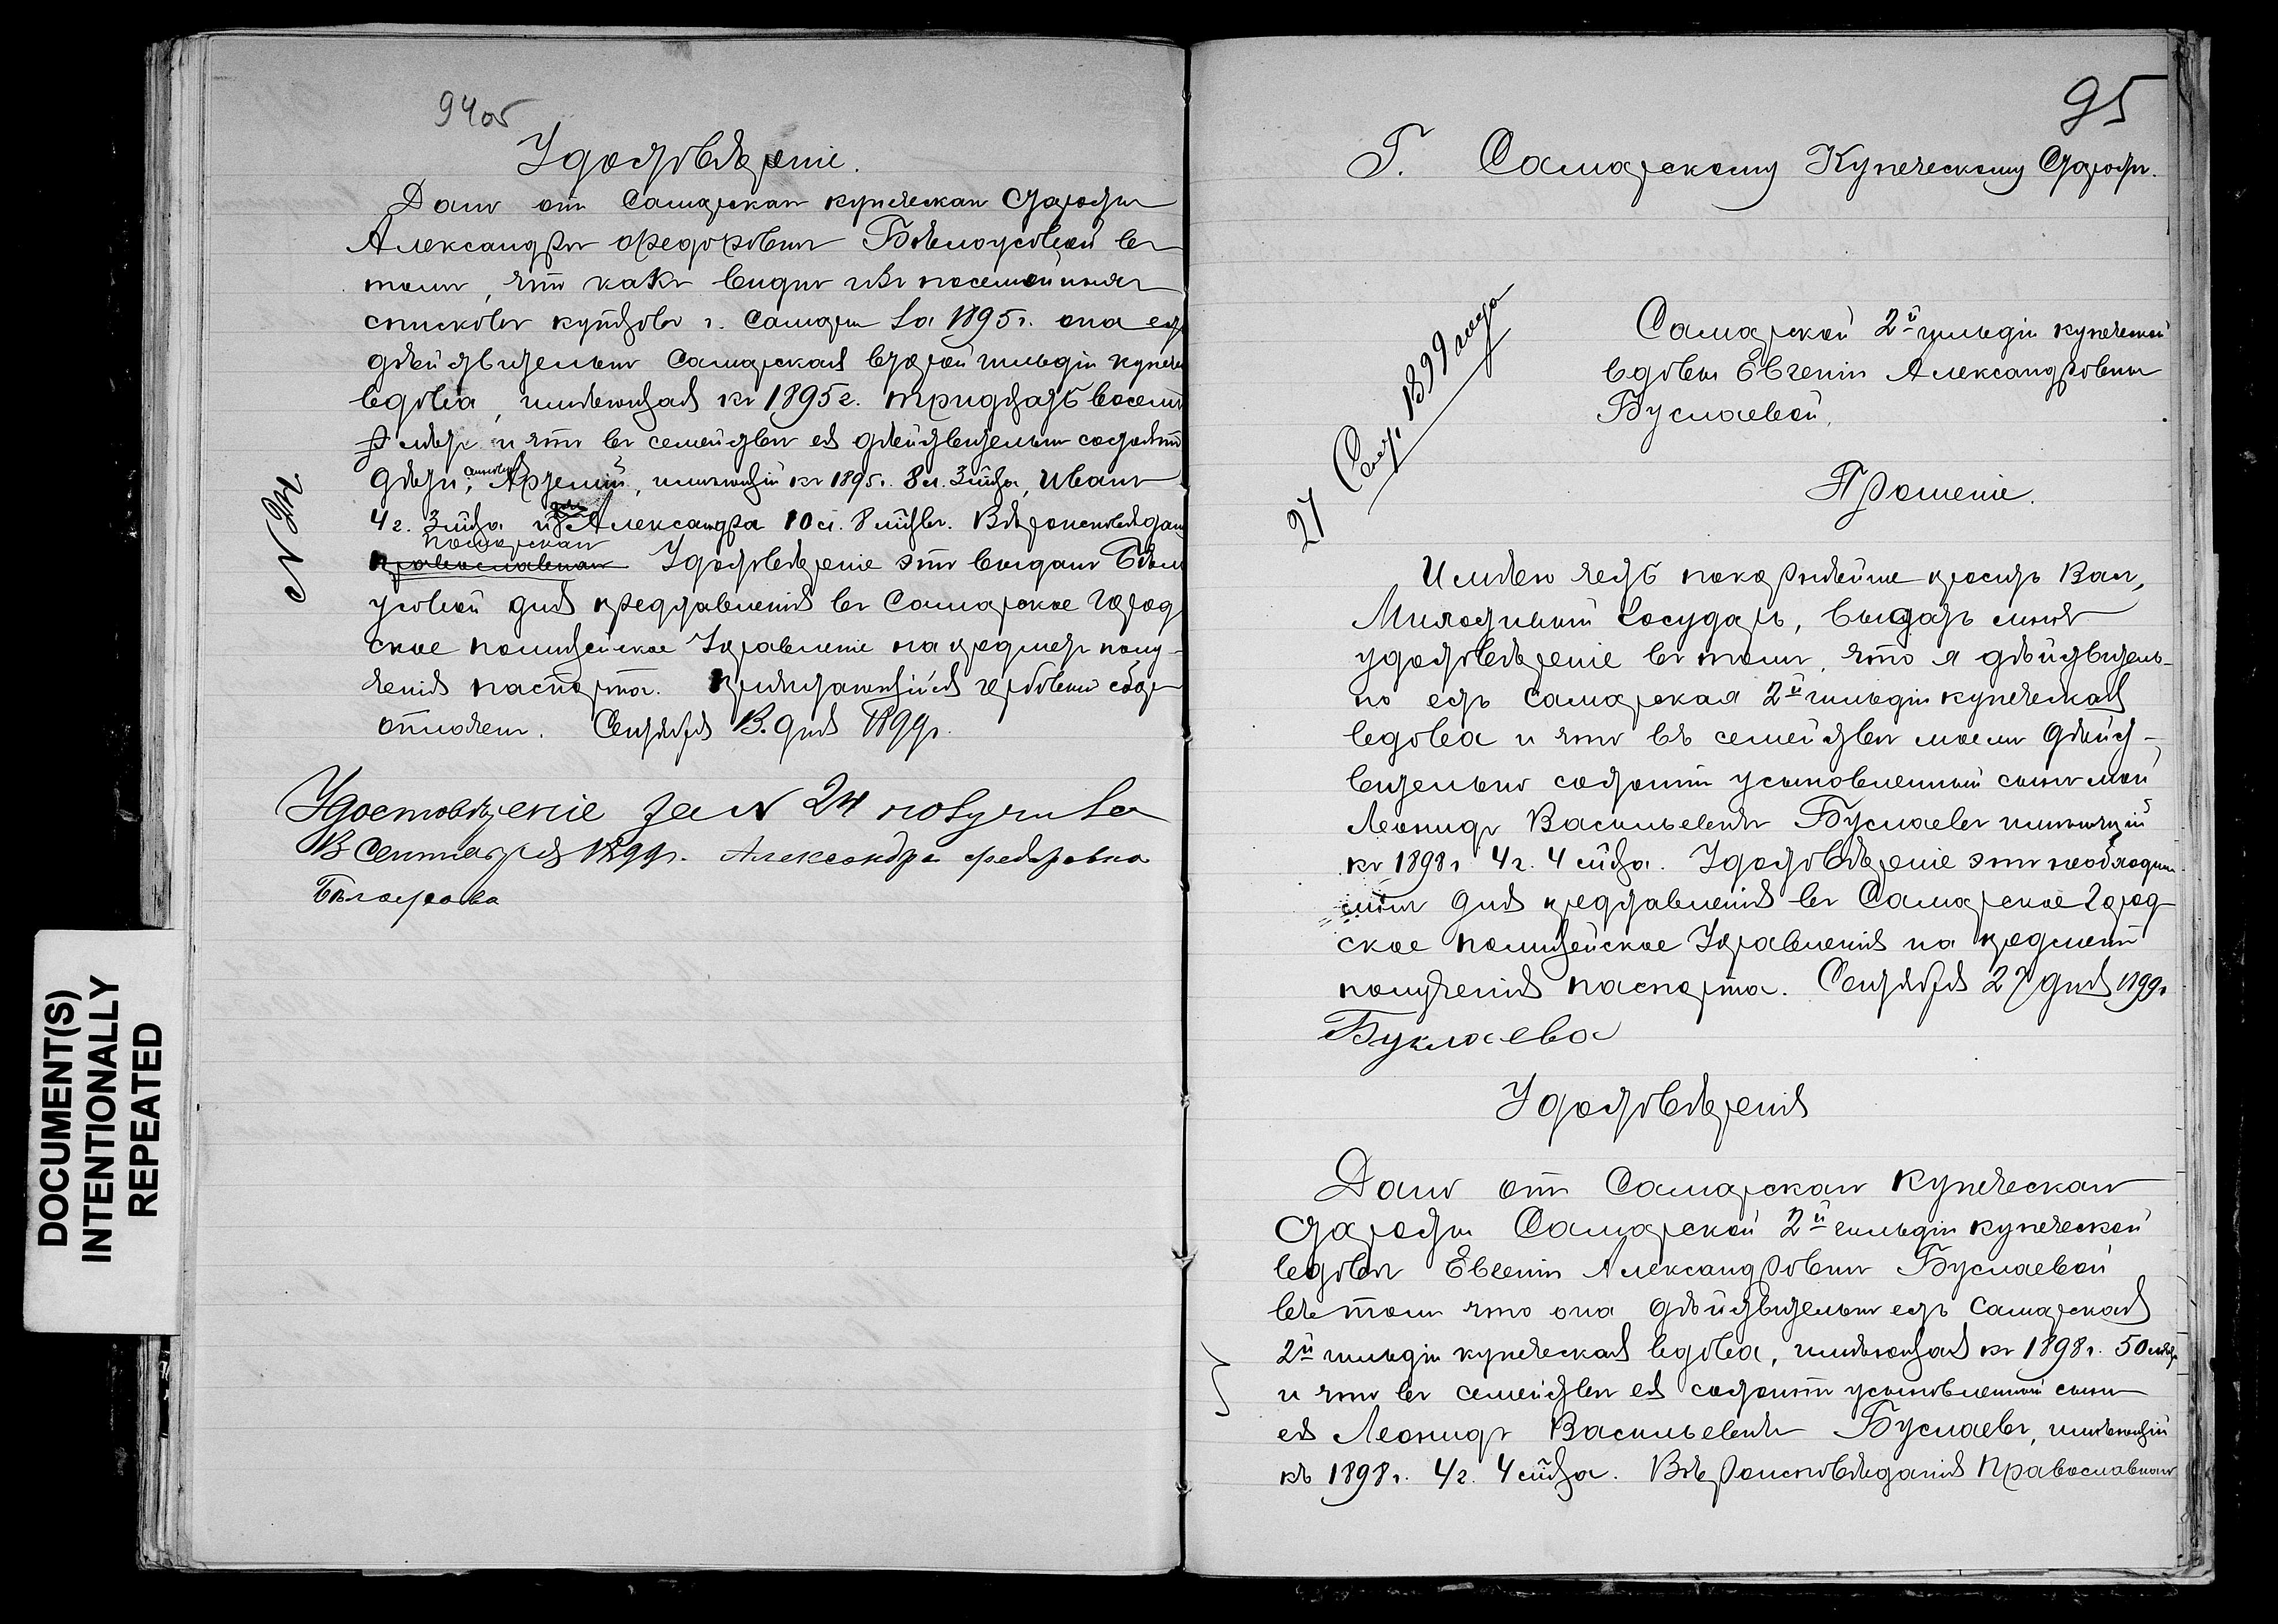 94об
Удостовѣреніе.
Дано отъ Самарскаго купеческаго Старосты
Александрѣ Ѳедоровнѣ Бѣлоусовой въ
томъ, что какъ видно изъ посемейныхъ
списковъ купцовъ г. Самары за 1895 г. она есть
дѣйствительно Самарская второй гильдіи купеч
вдова, имѣющая къ 1895 г. тридцать восемь
лѣтъ и что въ семействѣ ея дѣйствительно состоятъ
дѣти, сыновья Арсеній, имѣющій къ 1895 г. 8 л. 3 м̃ца, Иванъ
4 г. 3 м̃ца и дочь Александра 10 л. 8 м̃цевъ. Вѣроисповѣдан
поморскаго
православнаго Удостовѣреніе это выдано Бѣло
усовой для представленія въ Самарское Город
ское полицейское Управленіе на предметъ полу-
ченія паспорта. Причитающійся гербовый сборъ
оплоченъ. Сентября 13 дня 1899 г.
N 24
Удостовѣреніе за N 24 получила
13 Сентября 1899 г. Александра Федоровна
Бѣлоусова
95
Г. Самарскому Купеческому Старостѣ.
27 Сент. 1899 года
Самарской 2й гильдіи купеческой
вдовы Евгеніи Александровны
Буслаевой,
Прошеніе.
Имѣю честь покорнѣйше просить Васъ,
Милостивый Государь, выдать мнѣ
удостовѣреніе въ томъ, что я дѣйствитель-
но есть Самарская 2й гильдіи купеческая
вдова и что въ семействѣ моемъ дѣйст-
вительно состоитъ усыновленный сынъ мой
Леонидъ Васильевичъ Буслаевъ имѣющій
къ 1898 г. 4 г. 4 м̃ца. Удостовѣреніе это необходи-
мо для представленія въ Самарское Город-
ское полицейское Управленія на предметъ
полученія паспорта. Сентября 27 дня 1899 г.
Буслаева
Удостовѣренія
Дано отъ Самарскаго Купеческаго
Старосты Самарской 2й гильдіи купеческой
вдовѣ Евгеніи Александровнѣ Буслаевой
въ томъ что она дѣйствительно есть Самарская
2й гильдіи купеческая вдова, имѣющая къ 1898 г. 50 лѣтъ
и что въ семействѣ ея состоитъ усыновленный сынъ
ея Леонидъ Васильевичъ Буслаевъ, имѣющій
къ 1898 г. 4 г. 4 м̃ца. Вѣроисповѣданія Православнаго
DOCUMENT(S)
INTENTIONALLY
REPEATED